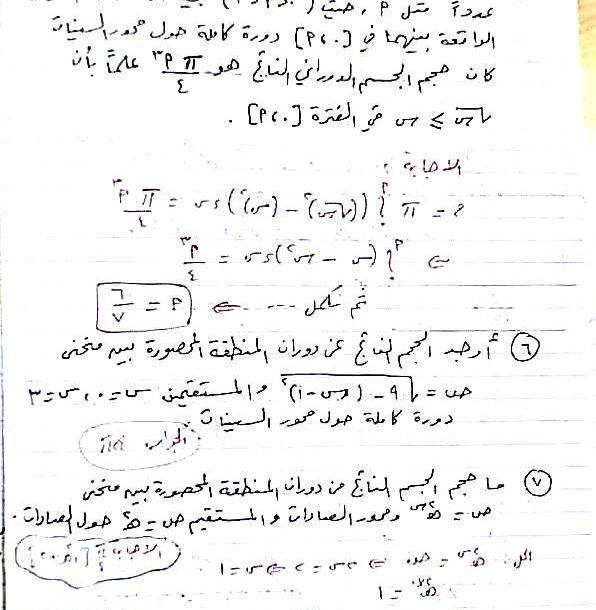 عدداً مثل P ، حيث
الواقعة بينهما في [٠،P] دورة كاملة حول محور السينات
كان حجم الجسم الدوراني الناتج هو π P³/٤ علماً بأن
√س ≥ س في الفترة [٠،P] .
الاجابة :
ح = π ∫ ((√س)² - (س)²) ءس = π P³/٤
⇐ ∫ (س - س²) ءس = P³/٤
ثم نكمل ---- ⇐ P = ٦/٧
⑥ أوجد الحجم الناتج عن دوران المنطقة المحصورة بين منحنى
ص = √٩ - (س-١)² والمستقيمين س=٠ ، س=٣
دورة كاملة حول محور السينات .
الجواب
⑦ ما حجم الجسم الناتج من دوران المنطقة المحصورة بين منحنى
ص = هـ²س ومحور الصادات والمستقيم ص = هـ² حول الصادات .
الحل : هـ²س = هـ² ⇐ ٢س = ٢ ⇐ س = ١
الاجابة
= ١